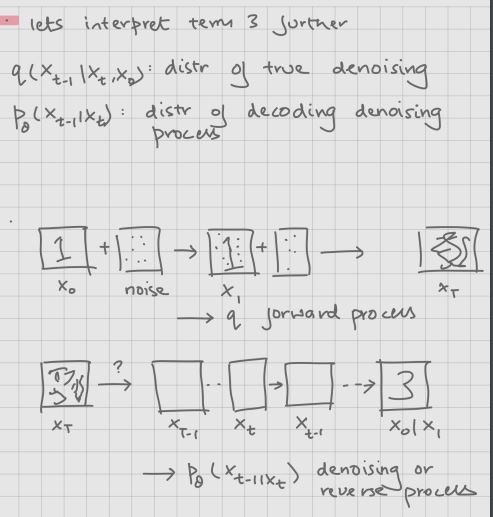 lets interpret term 3 further
q(x_{t-1}|x_t,x_0): distr of true denoising
p_θ(x_{t-1}|x_t): distr of decoding denoising
process
1 + → 1 + →
x_0 noise x_1 x_T
→ q forward process
? → .. → --→ 3
x_T x_{T-1} x_t x_{t-1} x_0|x_1
→ p_θ(x_{t-1}|x_t) denoising or
reverse process